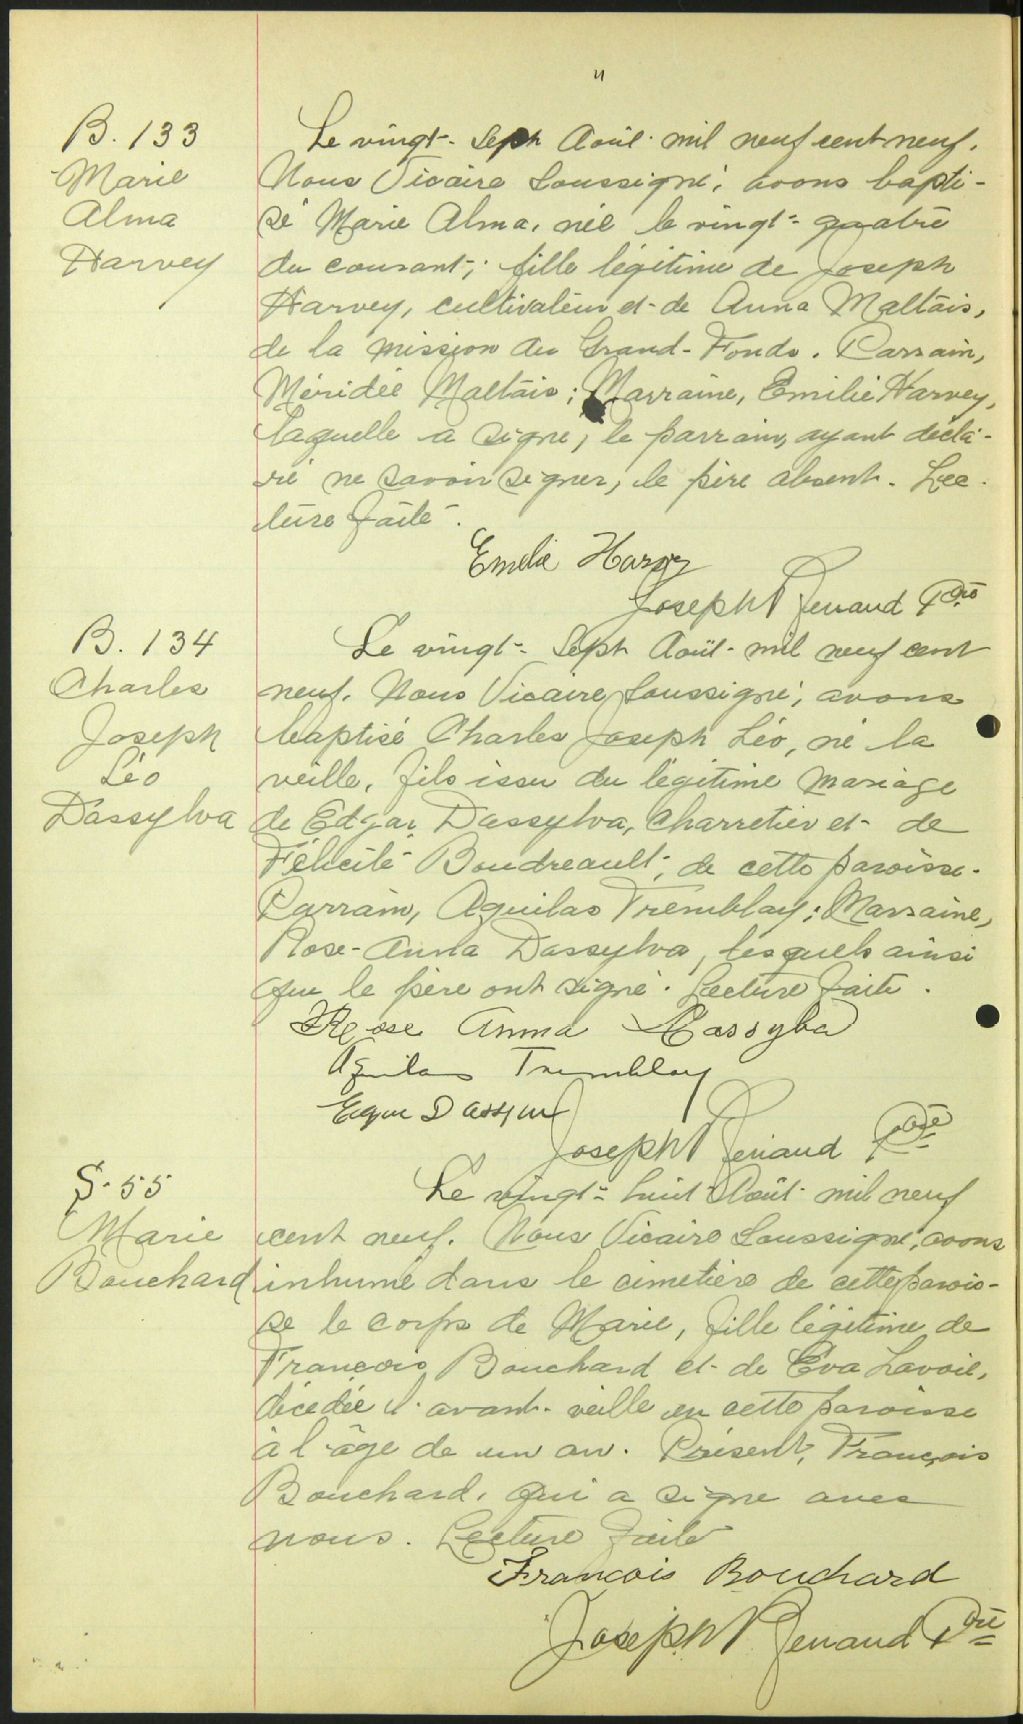 B. 133
Marie
Alma
Harvey
Le vingt-sept Août mil neuf cent neuf.
Nous Vicaire soussigné, avons bapti-
sé Marie Alma, née le vingt-quatre
du courant, fille légitime de Joseph
Harvey, cultivateur et de Anna Maltais,
de la mission du Grand-Fonds. Parrain,
Méridée Maltais; Marraine, Emilie Harvey,
laquelle a signé, le parrain, ayant décla-
ré ne savoir signer, le père absent. Lec-
ture faite.
Emelie Harvey
Joseph Renaud Ptre
B. 134
Charles
Joseph
Léo
Dassylva
Le vingt-sept Août mil neuf cent
neuf. Nous Vicaire soussigné, avons
baptisé Charles Joseph Léo, né la
veille, fils issu du légitime mariage
de Edgar Dassylva, charretier et de
Félicité Boudreault, de cette paroisse.
Parrain, Aquilas Tremblay; Marraine,
Rose-Anna Dassylva, lesquels ainsi
que le père ont signé. Lecture faite.
Rose Anna Dassylva
Aquilas Tremblay
Joseph Renaud Ptre
S. 55
Marie
Bouchard
Le vingt-huit Août mil neuf
cent neuf. Nous Vicaire soussigné, avons
inhumé dans le cimetière de cette parois-
se le corps de Marie, fille légitime de
François Bouchard et de Eva Lavoie,
décédée l'avant-veille en cette paroisse
à l'âge de un an. Présent, François
Bouchard, qui a signé avec
nous. Lecture faite
François Bouchard
Joseph Renaud Ptre